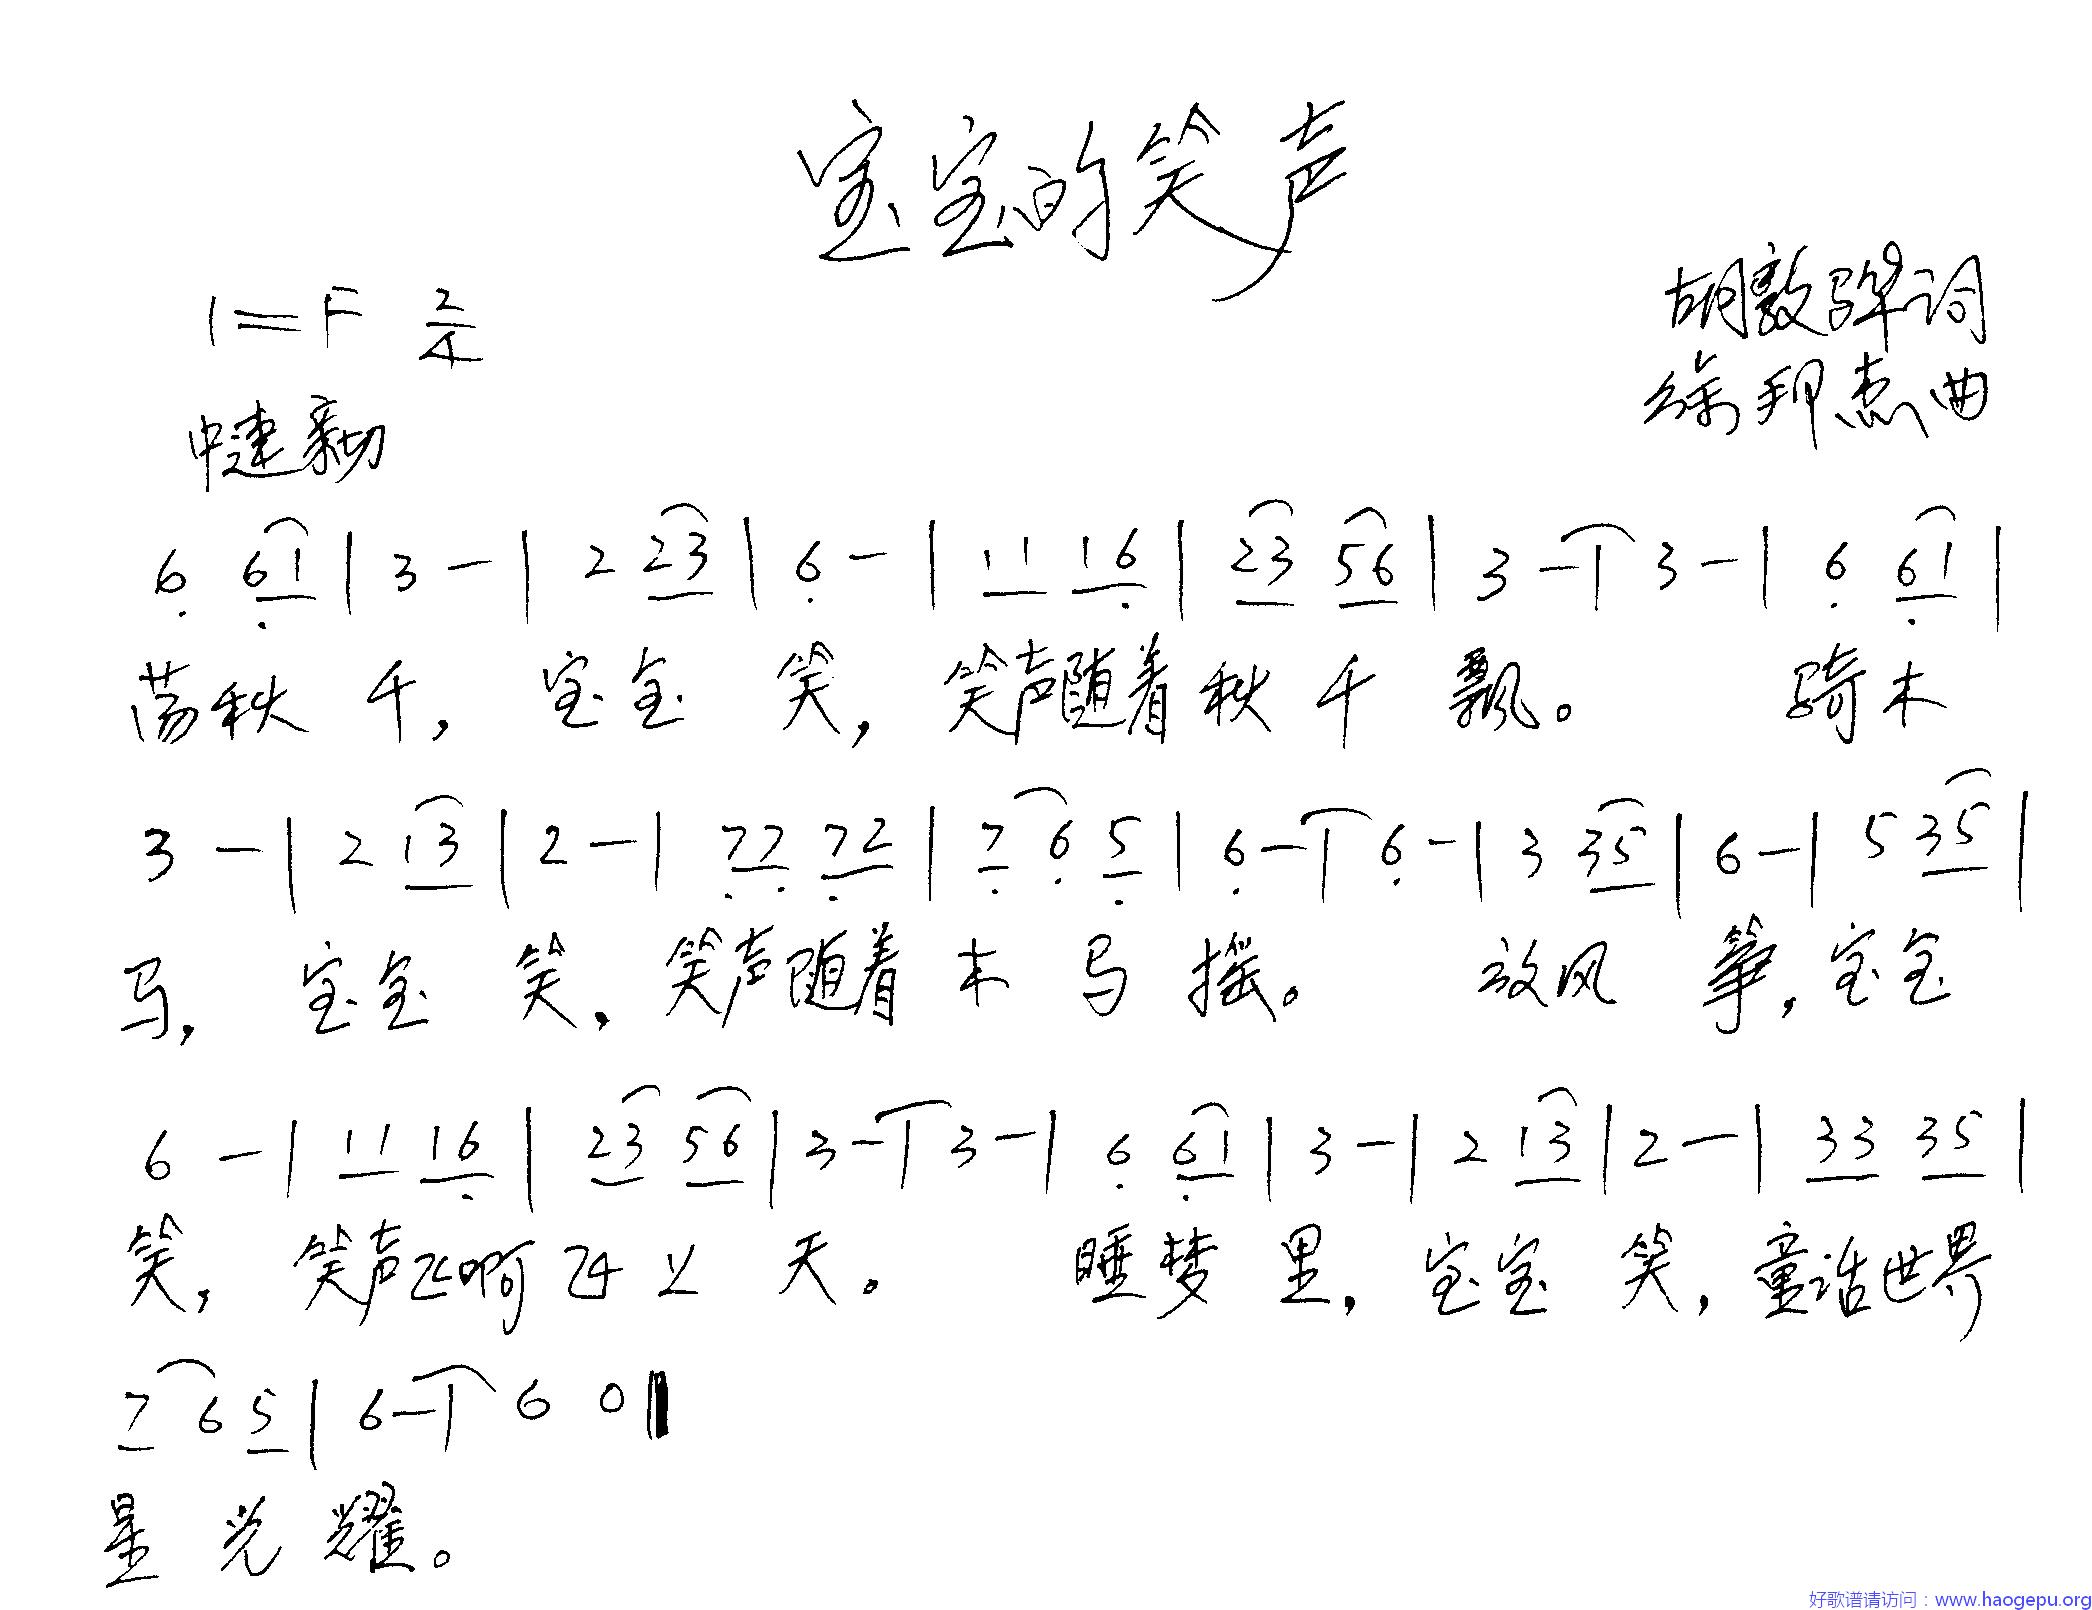 宝宝的笑声
1=F 2/4
胡敦骅词
中速 亲切
徐邦杰曲
6 61 | 3 - | 2 23 | 6 - | 11 16 | 23 56 | 3 - | 3 - | 6 61 |
荡秋千, 宝宝笑, 笑声随着秋千飘。 骑木
3 - | 2 13 | 2 - | 77 72 | 7 6 5 | 6 - | 6 - | 3 35 | 6 - | 5 35 |
马, 宝宝笑, 笑声随着木马摇。 放风筝, 宝宝
6 - | 11 16 | 23 56 | 3 - | 3 - | 6 61 | 3 - | 2 13 | 2 - | 33 35 |
笑, 笑声飞啊飞上天。 睡梦里, 宝宝笑, 童话世界
7 6 5 | 6 - | 6 0 ‖
星光耀。
好歌谱请访问:www.haogepu.org